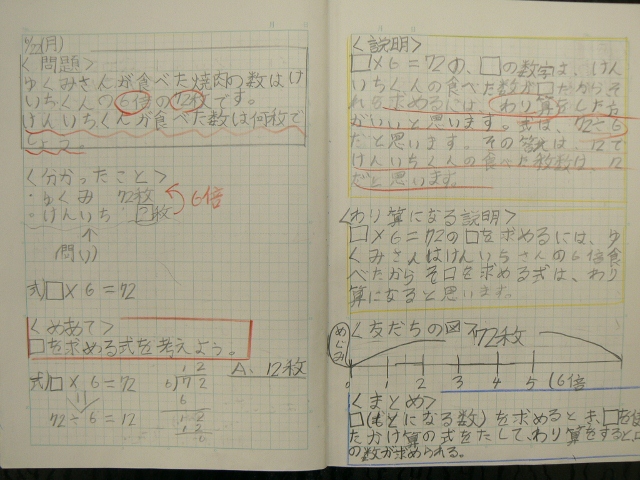 (月)
<問題>
ゆくみさんが食べた焼肉の数はけ
いちくんの6倍の72枚です。
けんいちくんが食べた数は何枚で
しょう。
<分かったこと>
・ゆくみ 72枚
・けんいち □枚
6倍
(問い)
式)□×6=72
<めあて>
□を求める式を考えよう。
式)□×6=72
72÷6=12
12
6)72
6
12
12
0
A、12枚
<説明>
□×6=72の、□の数字は、けん
いちくんの食べた数が□だからそ
れを求めるには、わり算をした方
がいいと思います。式は、72÷6
だと思います。その答えは、12で
けんいちくんの食べた枚数は、12
だと思います。
<わり算になる説明>
□×6=72の□を求めるには、ゆ
くみさんはけんいちさんの6倍食
べたからそ□を求める式は、わり
算になると思います。
<友だちの図>
めぐみ
72枚
0 1 2 3 4 5 (6倍
<まとめ>
□(もとになる数)を求めるとき、□を使
たかけ算の式をたして、わり算をすると、□
の数が求められる。